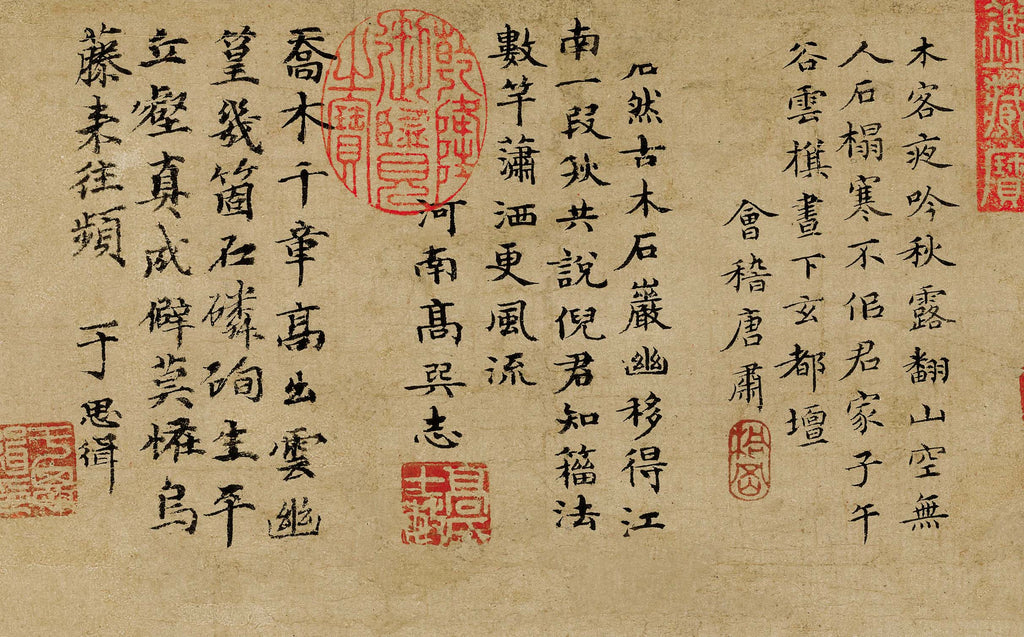 木客夜吟秋露翻山空無
人石榻寒不佀君家子午
谷雲晝下玄都壇
會稽唐肅
然古木石巖幽移得江
南一段秋共說倪君知籀法
數竿瀟洒更風流
河南高巽志
乾隆御覽之寶
喬木千章高出雲幽
篁幾箇石磷生平
立壑真成僻莫恠烏
藤来往頻
于思緝